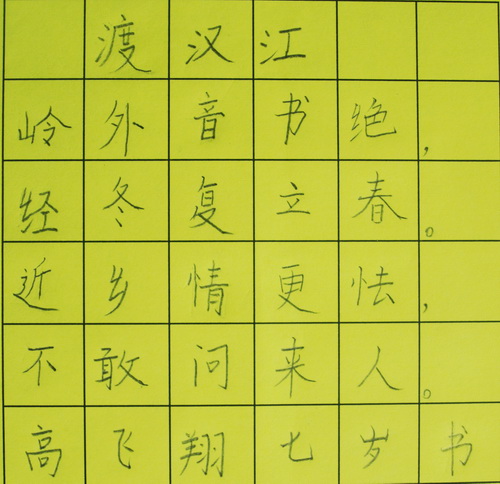 渡汉江
岭外音书绝，
经冬复立春。
近乡情更怯，
不敢问来人。
高飞翔七岁书